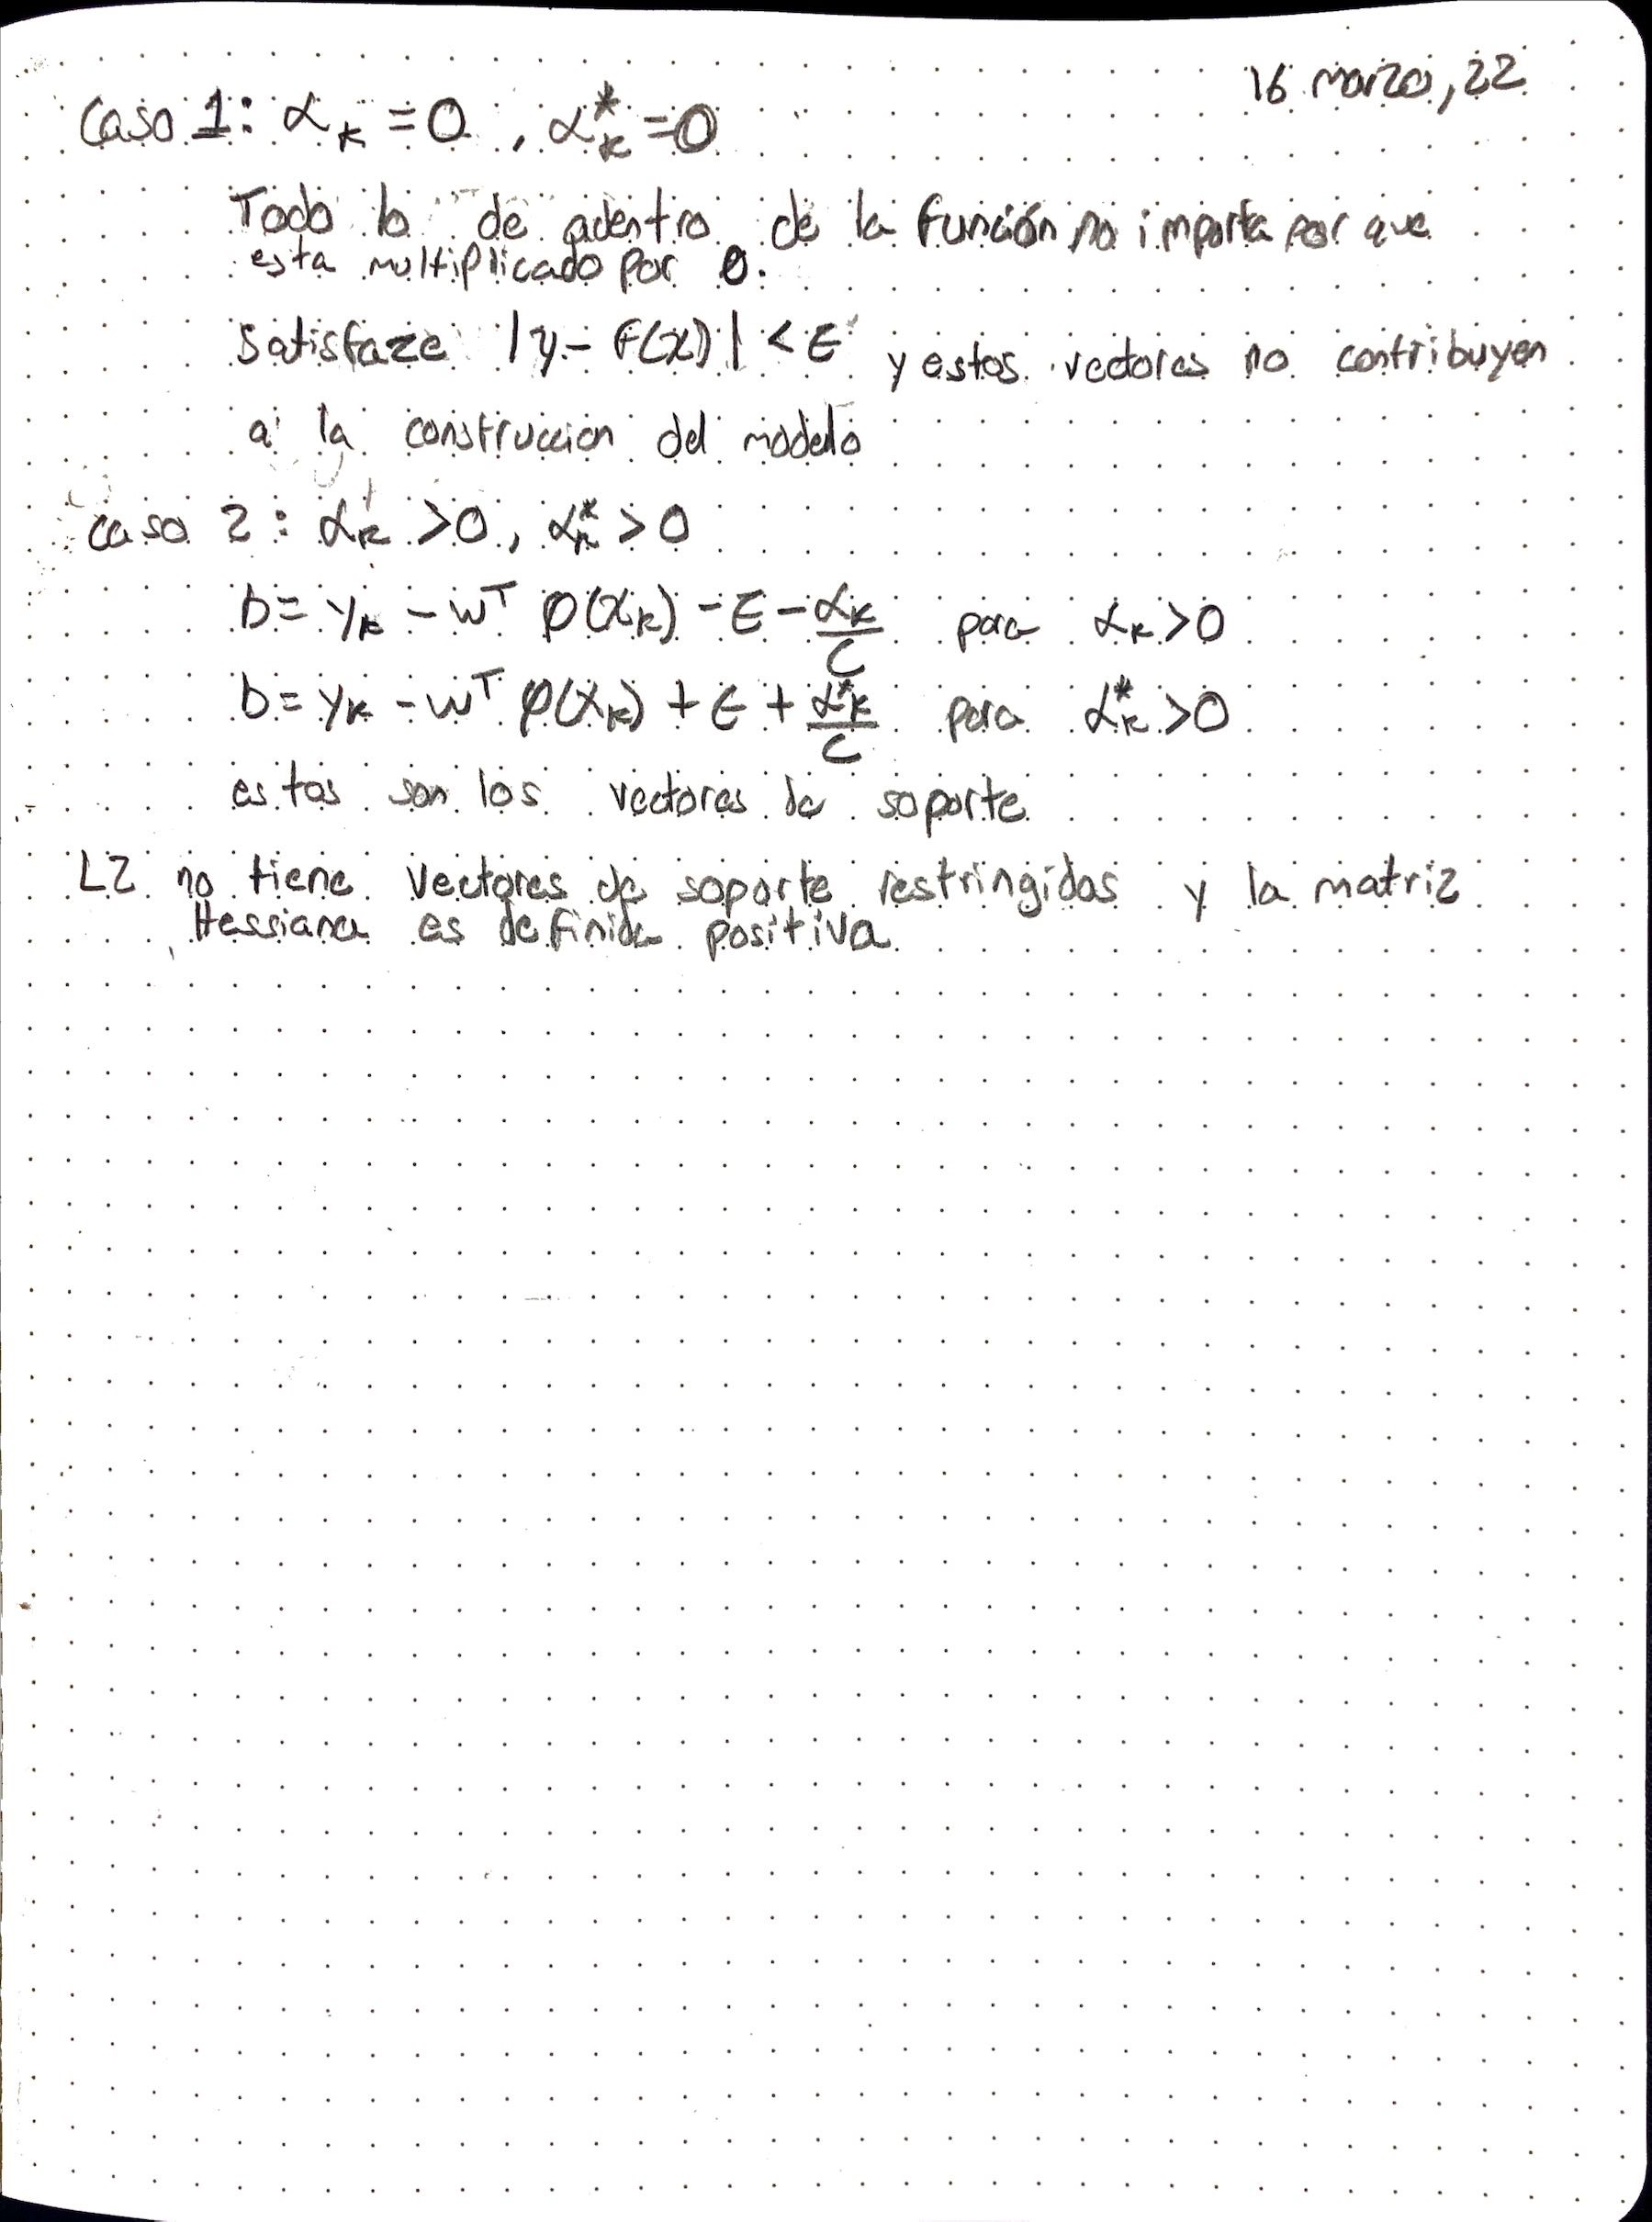 16 marzo, 22
Caso 1: α_k = 0 , α*_k = 0
Todo lo de adentro de la función no importa por que
esta multiplicado por 0.
Satisfaze |y - f(x)| < ε y estos vectores no contribuyen
a la construccion del modelo
caso 2: α_k > 0, α*_k > 0
b = y_k - w^T φ(x_k) - ε - α_k/C para α_k > 0
b = y_k - w^T φ(x_k) + ε + α*_k/C para α*_k > 0
estos son los vectores de soporte
L2 no tiene vectores de soporte restringidos y la matriz
Hessiana es definida positiva